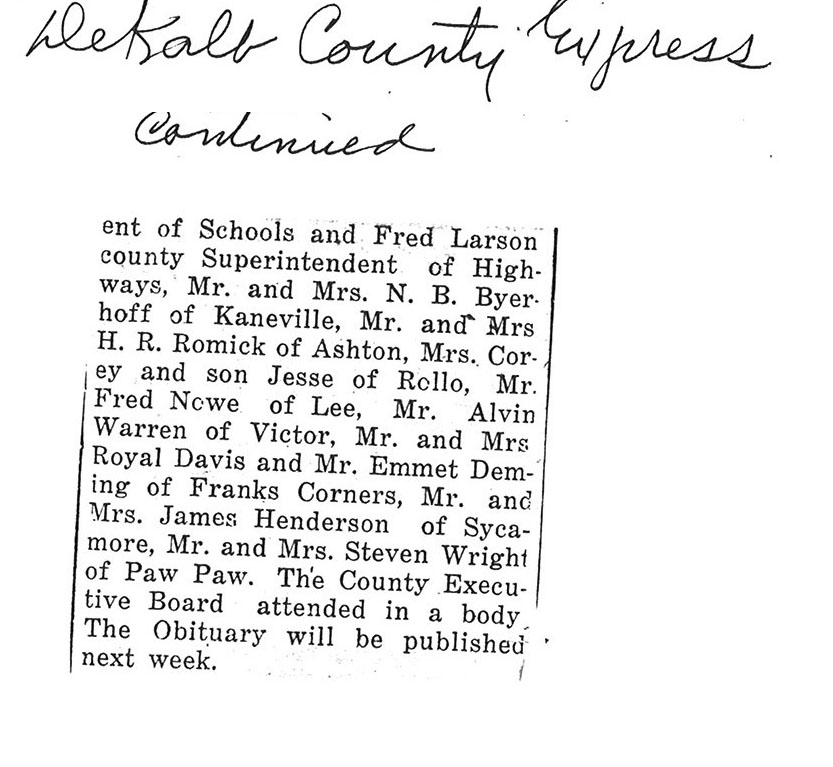 DeKalb County Express
Continued
ent of Schools and Fred Larson
county Superintendent of High-
ways, Mr. and Mrs. N. B. Byer-
hoff of Kaneville, Mr. and Mrs
H. R. Romick of Ashton, Mrs. Cor-
ey and son Jesse of Rollo, Mr.
Fred Nowe of Lee, Mr. Alvin
Warren of Victor, Mr. and Mrs
Royal Davis and Mr. Emmet Dem-
ing of Franks Corners, Mr. and
Mrs. James Henderson of Syca-
more, Mr. and Mrs. Steven Wright
of Paw Paw. The County Execu-
tive Board attended in a body.
The Obituary will be published
next week.